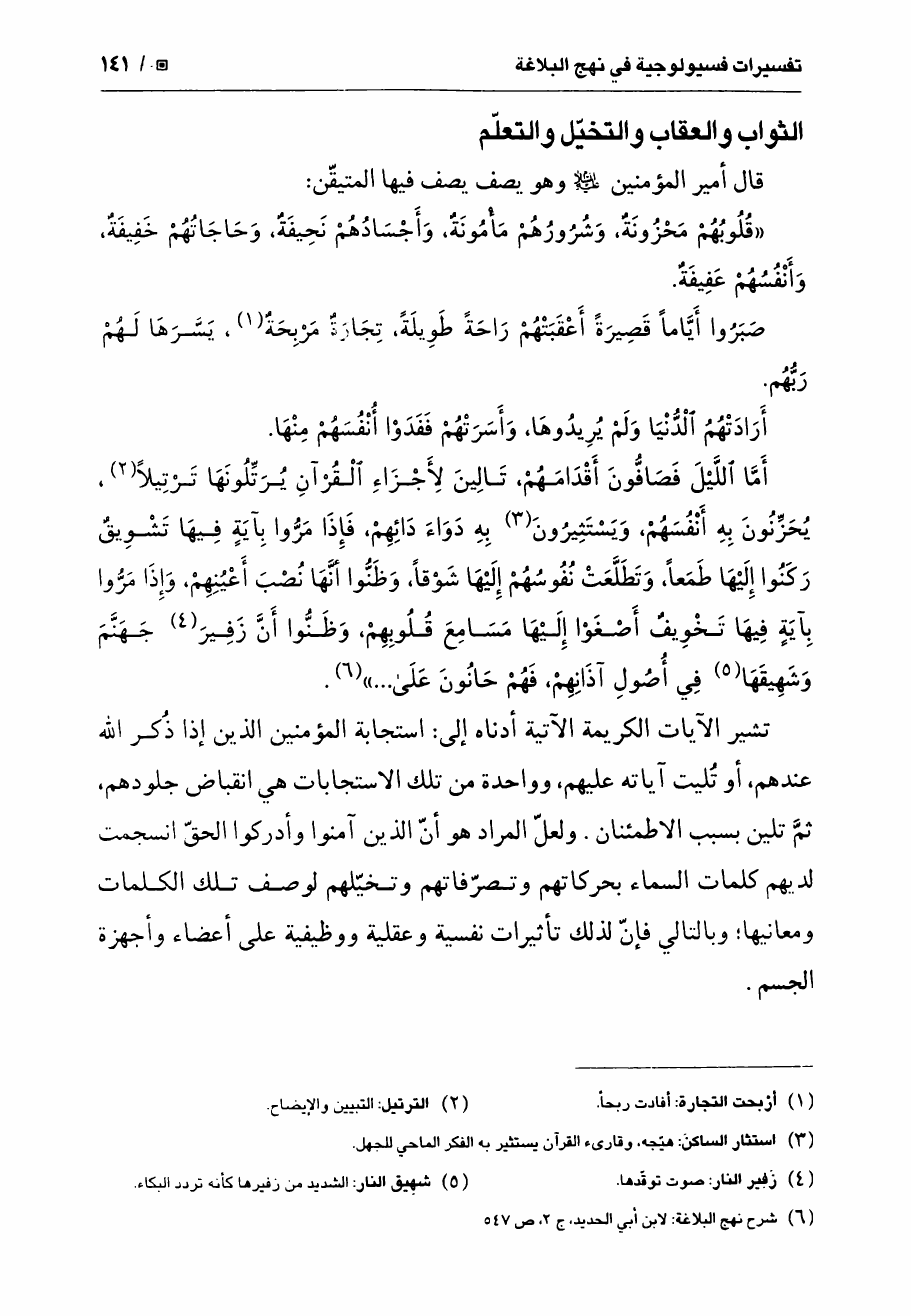 تفسيرات فسيولوجية في نهج البلاغة / ١٤١
الثواب والعقاب والتخيّل والتعلّم
قال أمير المؤمنين وهو يصف يصف فيها المتيقّن:
«قُلُوبُهُمْ مَحْزُونَةٌ، وَشُرُورُهُمْ مَأْمُونَةٌ، وَأَجْسَادُهُمْ نَحِيفَةٌ، وَحَاجَاتُهُمْ خَفِيفَةٌ،
وَأَنْفُسُهُمْ عَفِيفَةٌ.
صَبَرُوا أَيَّاماً قَصِيرَةً أَعْقَبَتْهُمْ رَاحَةً طَوِيلَةً، تِجَارَةٌ مَرْبِحَةٌ(١)، يَسَّرَهَا لَهُمْ
رَبُّهُم.
أَرَادَتْهُمُ ٱلدُّنْيَا وَلَمْ يُرِيدُوهَا، وَأَسَرَتْهُمْ فَفَدَوْا أَنْفُسَهُمْ مِنْهَا.
أَمَّا ٱللَّيْلَ فَصَافُّونَ أَقْدَامَهُمْ، تَالِينَ لِأَجْزَاءِ ٱلْقُرْآنِ يُرَتِّلُونَهَا تَرْتِيلاً(٢)،
يُحَزِّنُونَ بِهِ أَنْفُسَهُمْ، وَيَسْتَثِيرُونَ(٣) بِهِ دَوَاءَ دَائِهِمْ، فَإِذَا مَرُّوا بِآيَةٍ فِيهَا تَشْوِيقٌ
رَكَنُوا إِلَيْهَا طَمَعاً، وَتَطَلَّعَتْ نُفُوسُهُمْ إِلَيْهَا شَوْقاً، وَظَنُّوا أَنَّهَا نُصْبَ أَعْيُنِهِمْ، وَإِذَا مَرُّوا
بِآيَةٍ فِيهَا تَخْوِيفٌ أَصْغَوْا إِلَيْهَا مَسَامِعَ قُلُوبِهِمْ، وَظَنُّوا أَنَّ زَفِيرَ(٤) جَهَنَّمَ
وَشَهِيقَهَا(٥) فِي أُصُولِ آذَانِهِمْ، فَهُمْ حَانُونَ عَلَىٰ...»(٦).
تشير الآيات الكريمة الآتية أدناه إلى: استجابة المؤمنين الذين إذا ذُكر الله
عندهم، أو تُليت آياته عليهم، وواحدة من تلك الاستجابات هي انقباض جلودهم،
ثمّ تلين بسبب الاطمئنان. ولعلّ المراد هو أنّ الذين آمنوا وأدركوا الحقّ انسجمت
لديهم كلمات السماء بحركاتهم وتصرّفاتهم وتخيّلهم لوصف تلك الكلمات
ومعانيها؛ وبالتالي فإنّ لذلك تأثيرات نفسية وعقلية ووظيفية على أعضاء وأجهزة
الجسم.
(١) أرْبحت التجارة: أفادت ربحاً. (٢) الترتيل: التبيين والإيضاح.
(٣) استثار الساكنَ: هيّجه، وقارىء القرآن يستثير به الفكر الماحي للجهل.
(٤) زَفير النار: صوت توقّدها. (٥) شهيق النار: الشديد من زفيرها كأنه تردد البكاء.
(٦) شرح نهج البلاغة: لابن أبي الحديد، ج ٢، ص ٥٤٧